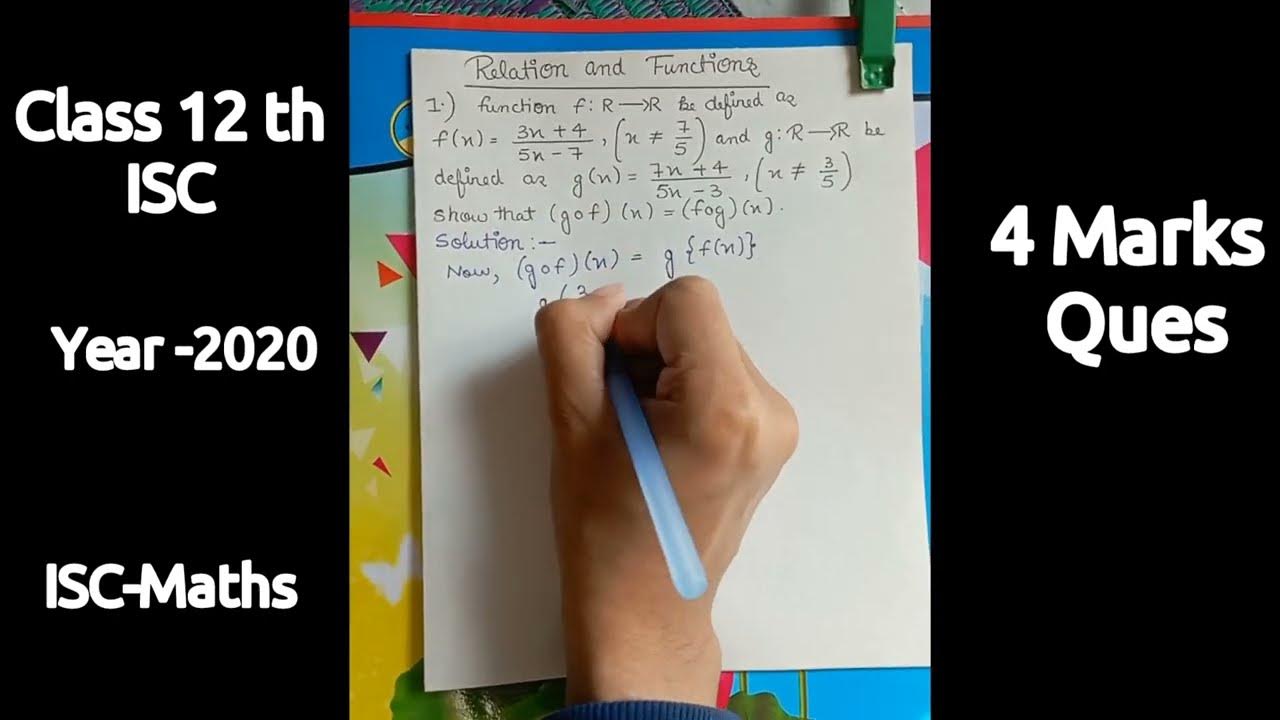 Class 12 th
ISC
Year -2020
ISC-Maths
Relation and Functions
1.) function f: R → R be defined as
f(x) = 3x + 4 / 5x - 7, (x ≠ 7/5) and g: R → R be
defined as g(x) = 7x + 4 / 5x - 3, (x ≠ 3/5)
show that (gof)(x) = (fog)(x).
Solution :-
Now, (gof)(x) = g {f(x)}
g( 3
4 Marks
Ques